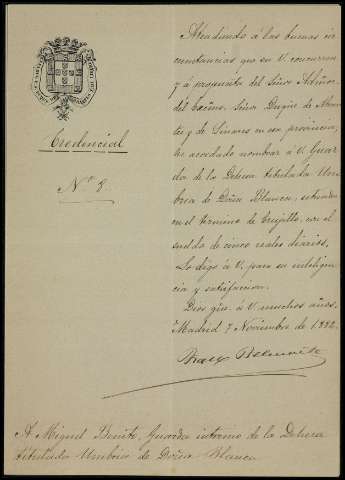 Atendiendo á las buenas cir
cunstancias que en V. concurren
y á propuesta del Señor Admor.
del Excmo. Señor Duque de Abran
tes y de Linares en esa provincia,
he acordado nombrar á V. Guar
da de la Dehesa titulada Um
bría de Doña Blanca, situada
en el término de Trujillo, con el
sueldo de cinco reales diarios.
Lo digo á V. para su inteligen
cia y satisfaccion.
Dios gue. á V. muchos años.
Madrid 7 Noviembre de 1882.
Credencial
Nº 8
A Miguel Benito, Guarda interino de la Dehesa
titulada Umbría de Doña Blanca